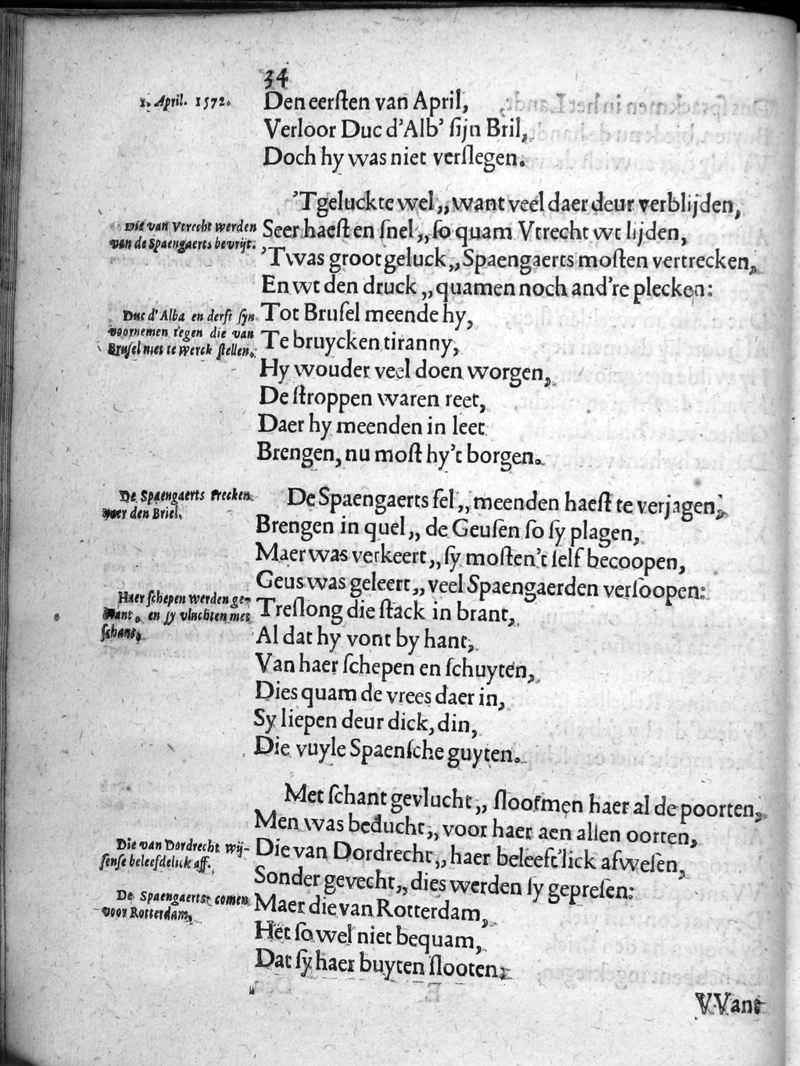 34
1. April. 1572.
Den eersten van April,
Verloor Duc d'Alb' sijn Bril,
Doch hy was niet verslegen.
'Tgeluckte wel,, want veel daer deur verblijden,
Die van Vtrecht werden
van de Spaengaerts bevrijt.
Seer haest en snel,, so quam Vtrecht wt lijden,
'Twas groot geluck,, Spaengaerts mosten vertrecken,
En wt den druck,, quamen noch and're plecken:
Duc d'Alba en derft sijn
voornemen tegen die van
Brusel niet te werck stellen.
Tot Brusel meende hy,
Te bruycken tiranny,
Hy wouder veel doen worgen,
De stroppen waren reet,
Daer hy meenden in leet
Brengen, nu most hy't borgen.
De Spaengaerts trecken
naer den Briel.
De Spaengaerts fel,, meenden haest te verjagen,
Brengen in quel,, de Geusen so sy plagen,
Maer was verkeert,, sy mosten't self becoopen,
Geus was geleert,, veel Spaengaerden versoopen:
Haer schepen werden ge-
brant, en sy vluchten met
schant.
Treslong die stack in brant,
Al dat hy vont by hant,
Van haer schepen en schuyten,
Dies quam de vrees daer in,
Sy liepen deur dick, din,
Die vuyle Spaensche guyten.
Met schant gevlucht,, slootmen haer al de poorten,
Men was beducht,, voor haer aen allen oorten,
Die van Dordrecht wij-
sense beleefdelick aff.
Die van Dordrecht,, haer beleeft'lick afwesen,
Sonder gevecht,, dies werden sy gepresen:
De Spaengaerts comen
voor Rotterdam,
Maer die van Rotterdam,
Het so wel niet bequam,
Dat sy haer buyten slooten:
VVant